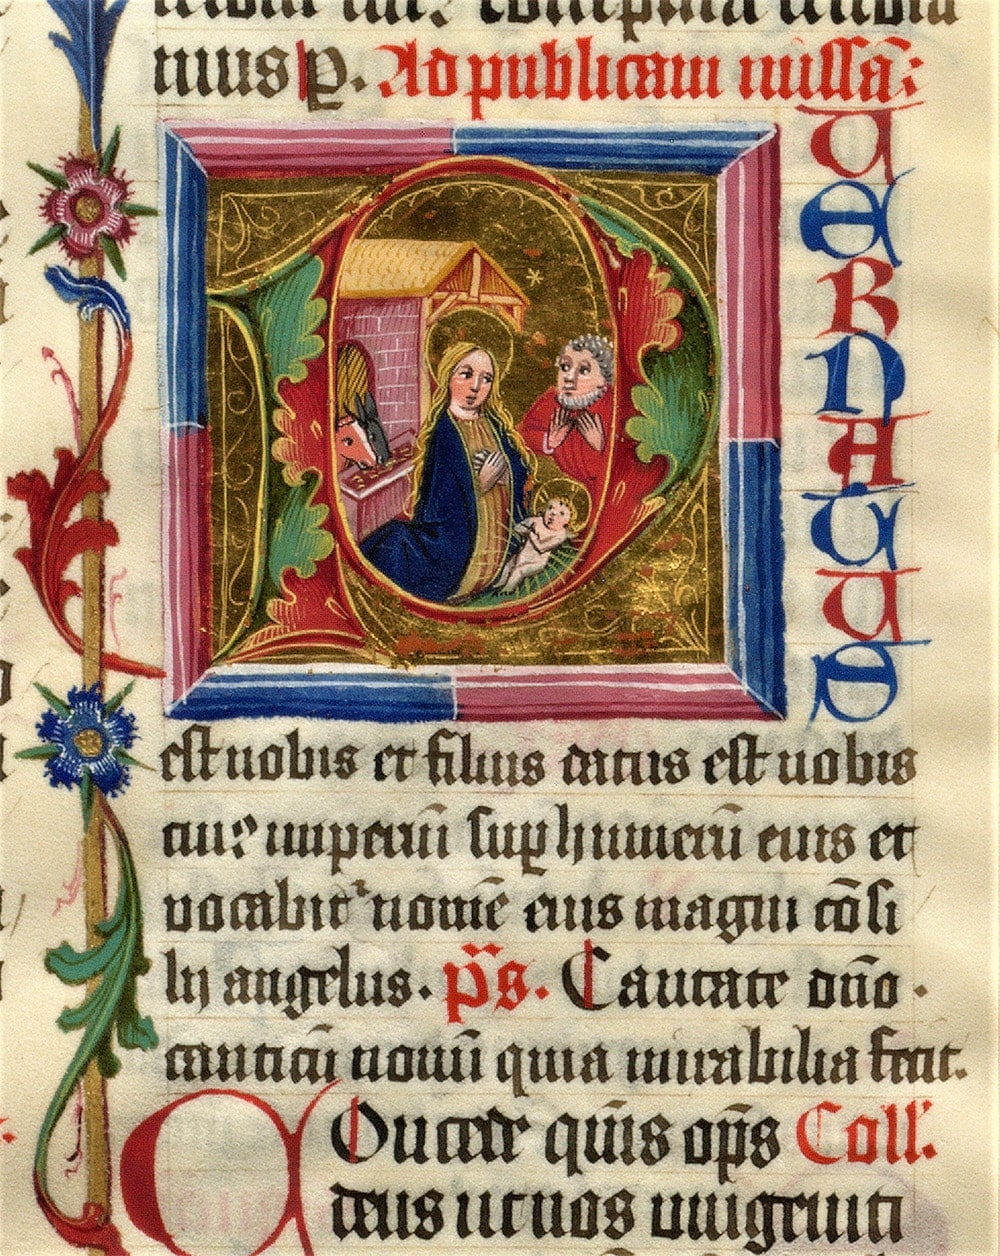 Ad publicam missā:
PUERNATUS
est nobis et filius datus est nobis
cui⁹ imperiū suꝑ humerū eius et
vocabit' nomē eius magni cōsi
lij angelus. p̈s. Cantate dn̄o
canticū nouū quia mirabilia fecit.
COncede qūs op̄s Coll'.
deus ut nos unigeniti